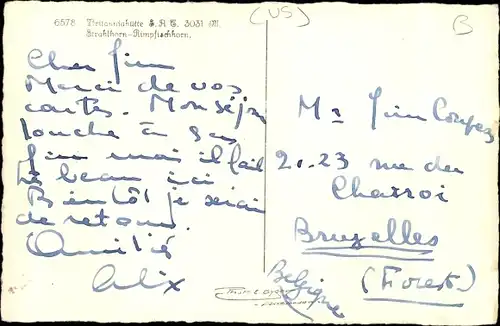 6578 Britanniahütte S.A.C. 3031 M.
Strahlhorn-Rimpfischhorn.
(US)
B
Cher Jim
Merci de vos
cartes. Mon séjour
touche à sa
fin mais il fait
très beau ici
Bientôt je serai
de retour.
Amitiés
Alix
Mr Jim
21.23 rue du
Charroi
Bruxelles
(Forest)
Belgique